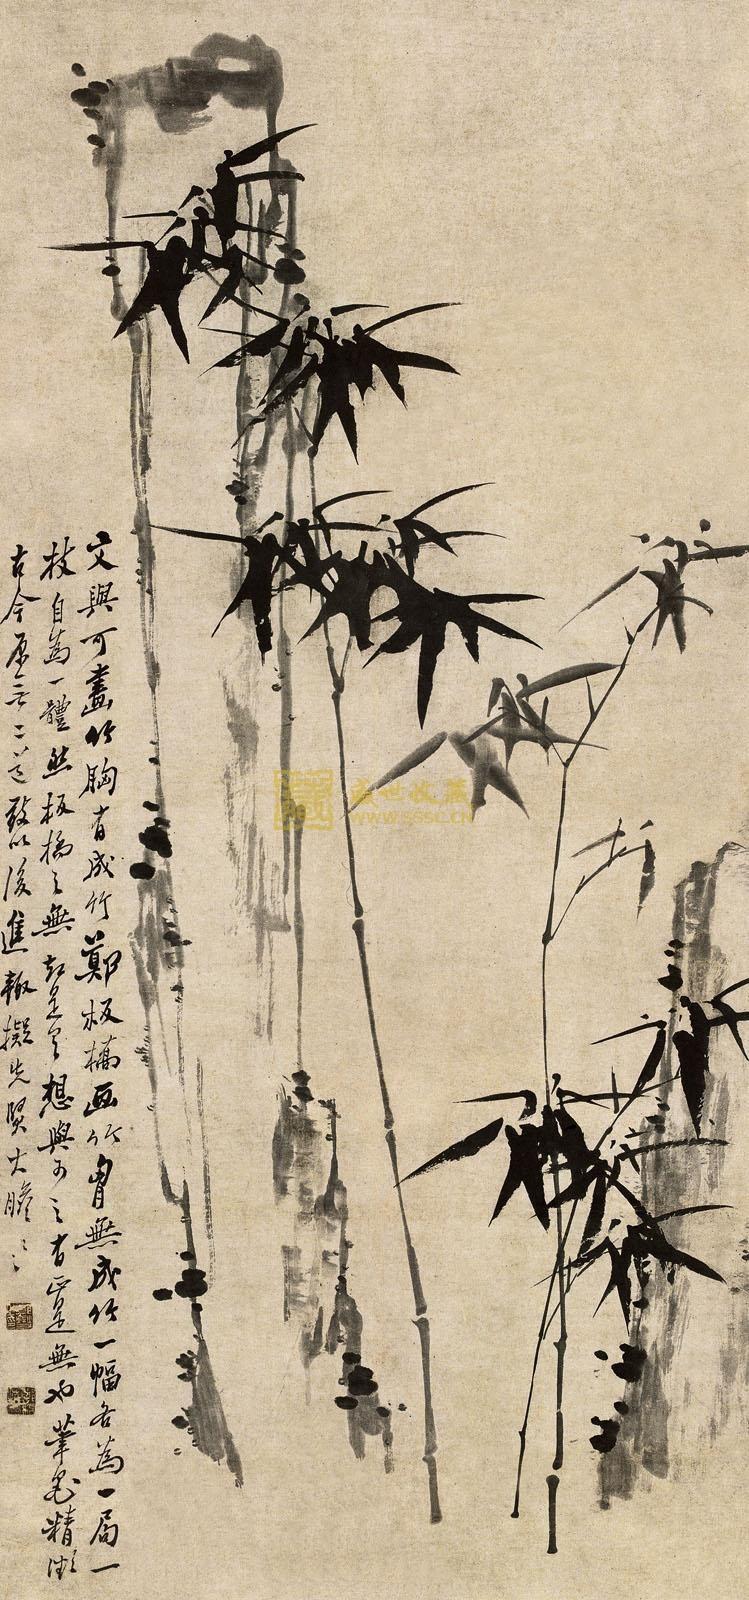 文與可畫竹胸有成竹鄭板橋画竹胷無成竹一幅各為一局一
枝自為一體然板橋之無即是有想與可之有正是無也筆墨精微
古今原無二道敢以後進輒擬先賢大膽大膽
盛世收藏
WWW.SSSC.CN